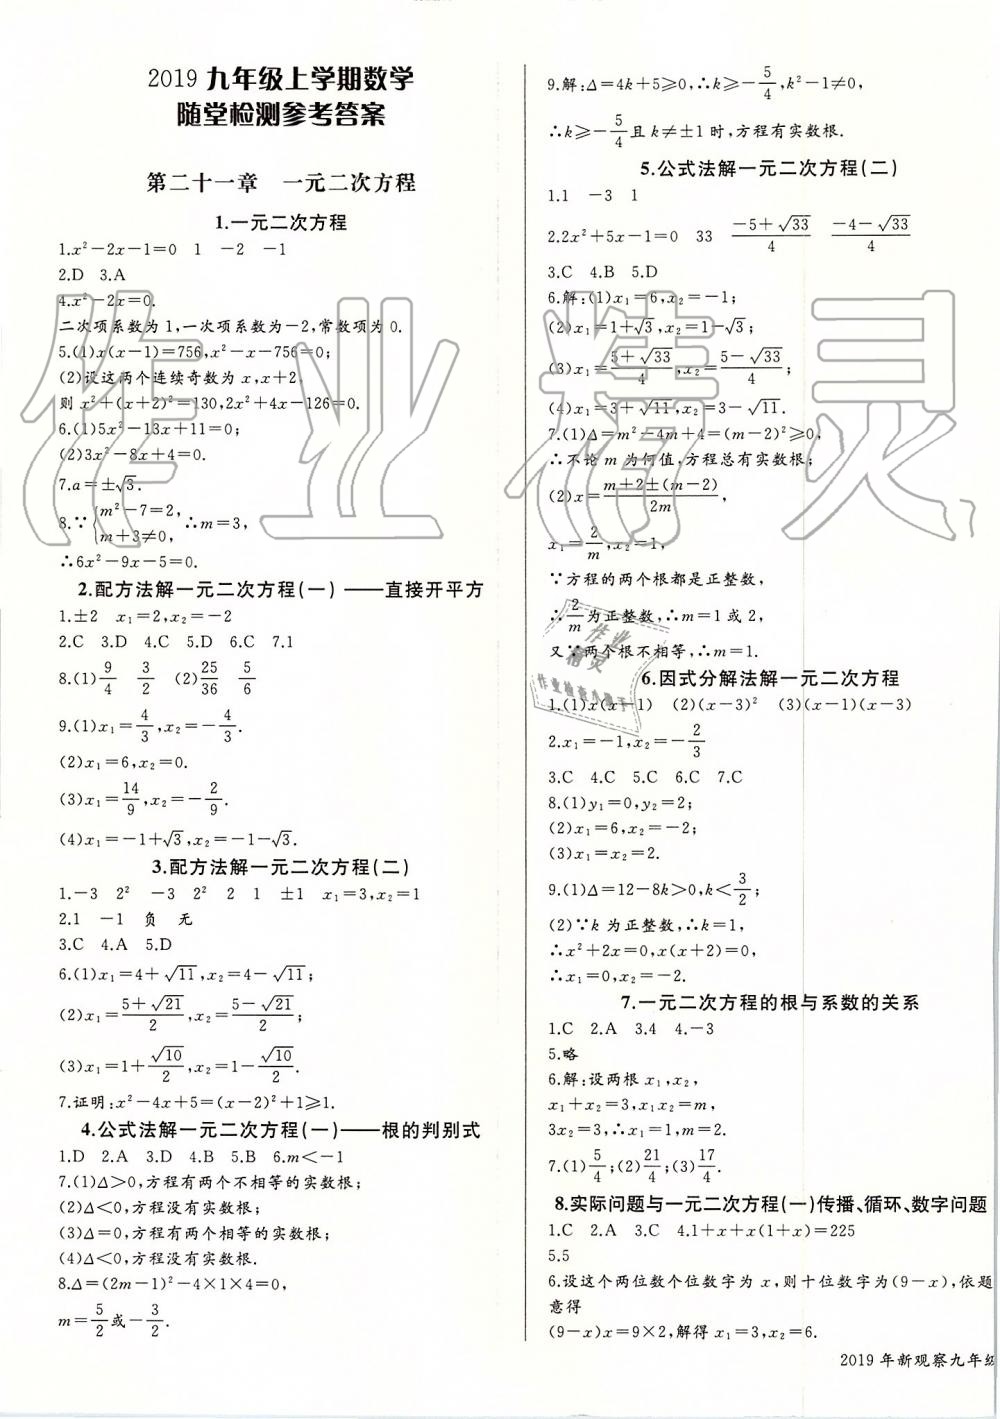 2019 九年级上学期数学
随堂检测参考答案
第二十一章 一元二次方程
1.一元二次方程
1.x²-2x-1=0 1 -2 -1
2.D 3.A
4.x²-2x=0.
二次项系数为1,一次项系数为-2,常数项为0.
5.(1)x(x-1)=756,x²-x-756=0;
(2)设这两个连续奇数为x,x+2,
则x²+(x+2)²=130,2x²+4x-126=0.
6.(1)5x²-13x+11=0;
(2)3x²-8x+4=0.
7.a=±√3.
8.∵{m²-7=2, m+3≠0, ∴m=3,
∴6x²-9x-5=0.
2.配方法解一元二次方程(一)——直接开平方
1.±2 x₁=2,x₂=-2
2.C 3.D 4.C 5.D 6.C 7.1
8.(1)9/4 3/2 (2)25/36 5/6
9.(1)x₁=4/3,x₂=-4/3.
(2)x₁=6,x₂=0.
(3)x₁=14/9,x₂=-2/9.
(4)x₁=-1+√3,x₂=-1-√3.
3.配方法解一元二次方程(二)
1.-3 2² -3 2² 2 1 ±1 x₁=3,x₂=1
2.1 -1 负 无
3.C 4.A 5.D
6.(1)x₁=4+√11,x₂=4-√11;
(2)x₁=(5+√21)/2,x₂=(5-√21)/2;
(3)x₁=1+√10/2,x₂=1-√10/2.
7.证明:x²-4x+5=(x-2)²+1≥1.
4.公式法解一元二次方程(一)——根的判别式
1.D 2.A 3.D 4.B 5.B 6.m<-1
7.(1)Δ>0,方程有两个不相等的实数根;
(2)Δ<0,方程没有实数根;
(3)Δ=0,方程有两个相等的实数根;
(4)Δ<0,方程没有实数根.
8.Δ=(2m-1)²-4×1×4=0,
m=5/2或-3/2.
9.解:Δ=4k+5≥0,∴k≥-5/4,k²-1≠0,
∴k≥-5/4且k≠±1时,方程有实数根.
5.公式法解一元二次方程(二)
1.1 -3 1
2.2x²+5x-1=0 33 (-5+√33)/4 (-4-√33)/4
3.C 4.B 5.D
6.解:(1)x₁=6,x₂=-1;
(2)x₁=1+√3,x₂=1-√3;
(3)x₁=(5+√33)/4,x₂=(5-√33)/4;
(4)x₁=3+√11,x₂=3-√11.
7.(1)Δ=m²-4m+4=(m-2)²≥0,
∴不论m为何值,方程总有实数根;
(2)x=(m+2±(m-2))/2m,
x₁=2/m,x₂=1,
∵方程的两个根都是正整数,
∴2/m为正整数,∴m=1或2,
又∵两个根不相等,∴m=1.
6.因式分解法解一元二次方程
1.(1)x(x-1) (2)(x-3)² (3)(x-1)(x-3)
2.x₁=-1,x₂=-2/3
3.C 4.C 5.C 6.C 7.C
8.(1)y₁=0,y₂=2;
(2)x₁=6,x₂=-2;
(3)x₁=x₂=2.
9.(1)Δ=12-8k>0,k<3/2;
(2)∵k为正整数,∴k=1,
∴x²+2x=0,x(x+2)=0,
∴x₁=0,x₂=-2.
7.一元二次方程的根与系数的关系
1.C 2.A 3.4 4.-3
5.略
6.解:设两根x₁,x₂,
x₁+x₂=3,x₁x₂=m,
3x₂=3,∴x₁=1,m=2.
7.(1)5/4;(2)21/4;(3)17/4.
8.实际问题与一元二次方程(一)传播、循环、数字问题
1.C 2.A 3.C 4.1+x+x(1+x)=225
5.5
6.设这个两位数个位数字为x,则十位数字为(9-x),依题
意得
(9-x)x=9×2,解得x₁=3,x₂=6.
2019年新观察九年级
作业精灵
作业
精灵
作业检查小助手